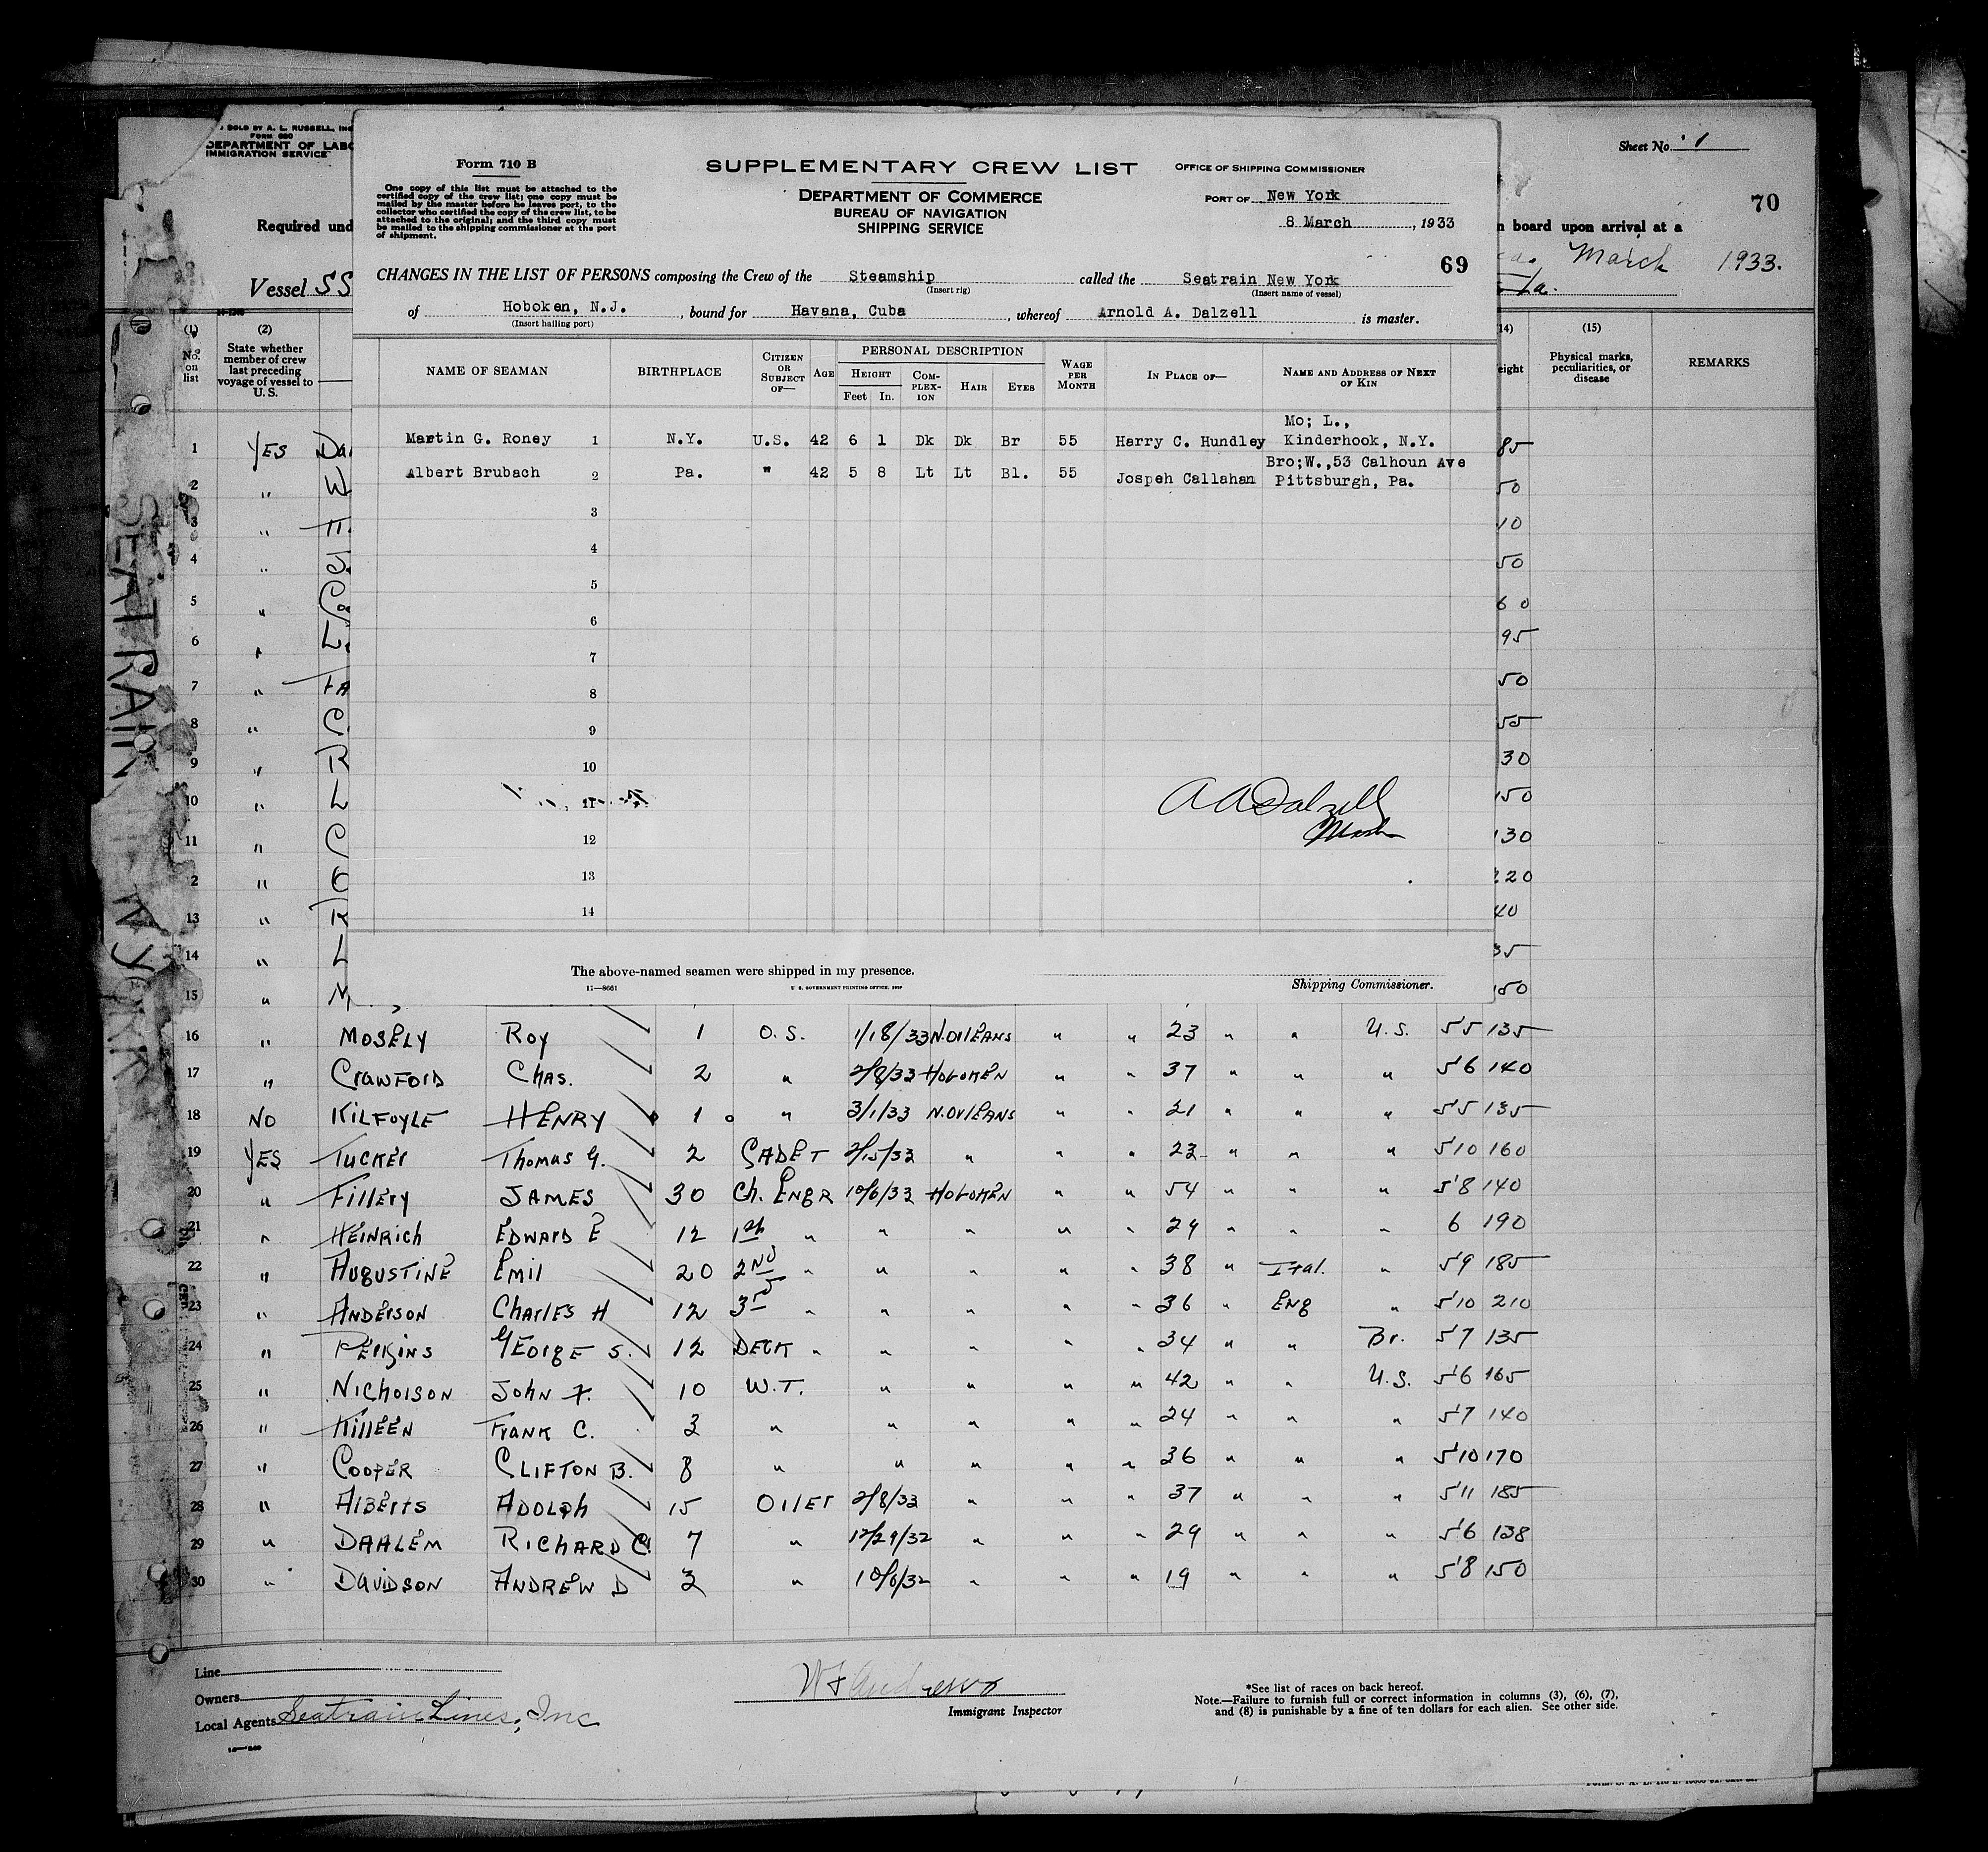 SOLD BY A. L. RUSSELL, INC
FORM 680
DEPARTMENT OF LABO
IMMIGRATION SERVICE
Required und
Vessel SS
Sheet No. 1
70
n board upon arrival at a
March 1933.
La.
Form 710 B
One copy of this list must be attached to the
certified copy of the crew list; one copy must be
mailed by the master before he leaves port, to the
collector who certified the copy of the crew list, to be
attached to the original; and the third copy must
be mailed to the shipping commissioner at the port
of shipment.
SUPPLEMENTARY CREW LIST
DEPARTMENT OF COMMERCE
BUREAU OF NAVIGATION
SHIPPING SERVICE
OFFICE OF SHIPPING COMMISSIONER
PORT OF New York
8 March, 1933
69
CHANGES IN THE LIST OF PERSONS composing the Crew of the Steamship called the Seatrain New York
(Insert rig) (Insert name of vessel)
of Hoboken, N.J., bound for Havana, Cuba, whereof Arnold A. Dalzell is master.
(Insert hailing port)
NAME OF SEAMAN BIRTHPLACE CITIZEN OR SUBJECT OF— AGE PERSONAL DESCRIPTION HEIGHT Feet In. COM-PLEX-ION HAIR EYES WAGE PER MONTH IN PLACE OF— NAME AND ADDRESS OF NEXT OF KIN
Mo; L.,
Martin G. Roney 1 N.Y. U.S. 42 6 1 Dk Dk Br 55 Harry C. Hundley Kinderhook, N.Y.
Bro;W.,53 Calhoun Ave
Albert Brubach 2 Pa. " 42 5 8 Lt Lt Bl. 55 Jospeh Callahan Pittsburgh, Pa.
3
4
5
6
7
8
9
10
11
12
13
14
A A Dalzell
Master
The above-named seamen were shipped in my presence.
Shipping Commissioner.
11—8661
U. S. GOVERNMENT PRINTING OFFICE
(1) No. on list
(2) State whether member of crew last preceding voyage of vessel to U. S.
14) eight
(15) Physical marks, peculiarities, or disease
REMARKS
SEATRAIN NEW YORK
1 YES Dal 85
2 " W 50
3 " 10
4 " J. 50
5 " Co 60
6 " L. 95
7 " HA 50
8 " C. 55
9 " R 30
10 " L 150
11 " C 130
2 " 220
13 " R 40
14 " L 35
15 " M 150
16 " MOSELY ROY 1 O.S. 1/18/33 N.ORLEANS " " 23 " " U.S. 5'5 135
17 " CRAWFORD CHAS. 2 " 2/8/33 HOBOKEN " " 37 " " " 5'6 140
18 NO KILFOYLE HENRY 1 " 3/1/33 N.ORLEANS " " 21 " " " 5'5 135
19 YES TUCKER THOMAS G. 2 CADET 2/15/33 " " " 23 " " " 5'10 160
20 " FILLERY JAMES 30 Ch. ENGR 10/6/33 HOBOKEN " " 54 " " " 5'8 140
21 " HEINRICH EDWARD E 12 1st " " " " " 29 " " " 6 190
22 " AUGUSTINE EMIL 20 2ND " " " " " 38 " Ital. " 5'9 185
23 " ANDERSON CHARLES H 12 3rd " " " " " 36 " ENG " 5'10 210
24 " PERKINS GEORGE S. 12 DECK " " " " " 34 " " Br. 5'7 135
25 " NICHOLSON JOHN F. 10 W.T. " " " " 42 " " U.S. 5'6 165
26 " KILLEEN FRANK C. 3 " " " " " 24 " " " 5'7 140
27 " COOPER CLIFTON B. 8 " " " " " 36 " " " 5'10 170
28 " ALBERTS ADOLPH 15 OILER 2/8/33 " " " 37 " " " 5'11 185
29 " DAHLEM RICHARD C. 7 " 12/29/32 " " " 29 " " " 5'6 138
30 " DAVIDSON ANDREW D 3 " 10/6/32 " " " 19 " " " 5'8 150
Line
Owners
Local Agents Seatrain Lines, Inc
Immigrant Inspector
*See list of races on back hereof.
Note.—Failure to furnish full or correct information in columns (3), (6), (7),
and (8) is punishable by a fine of ten dollars for each alien. See other side.